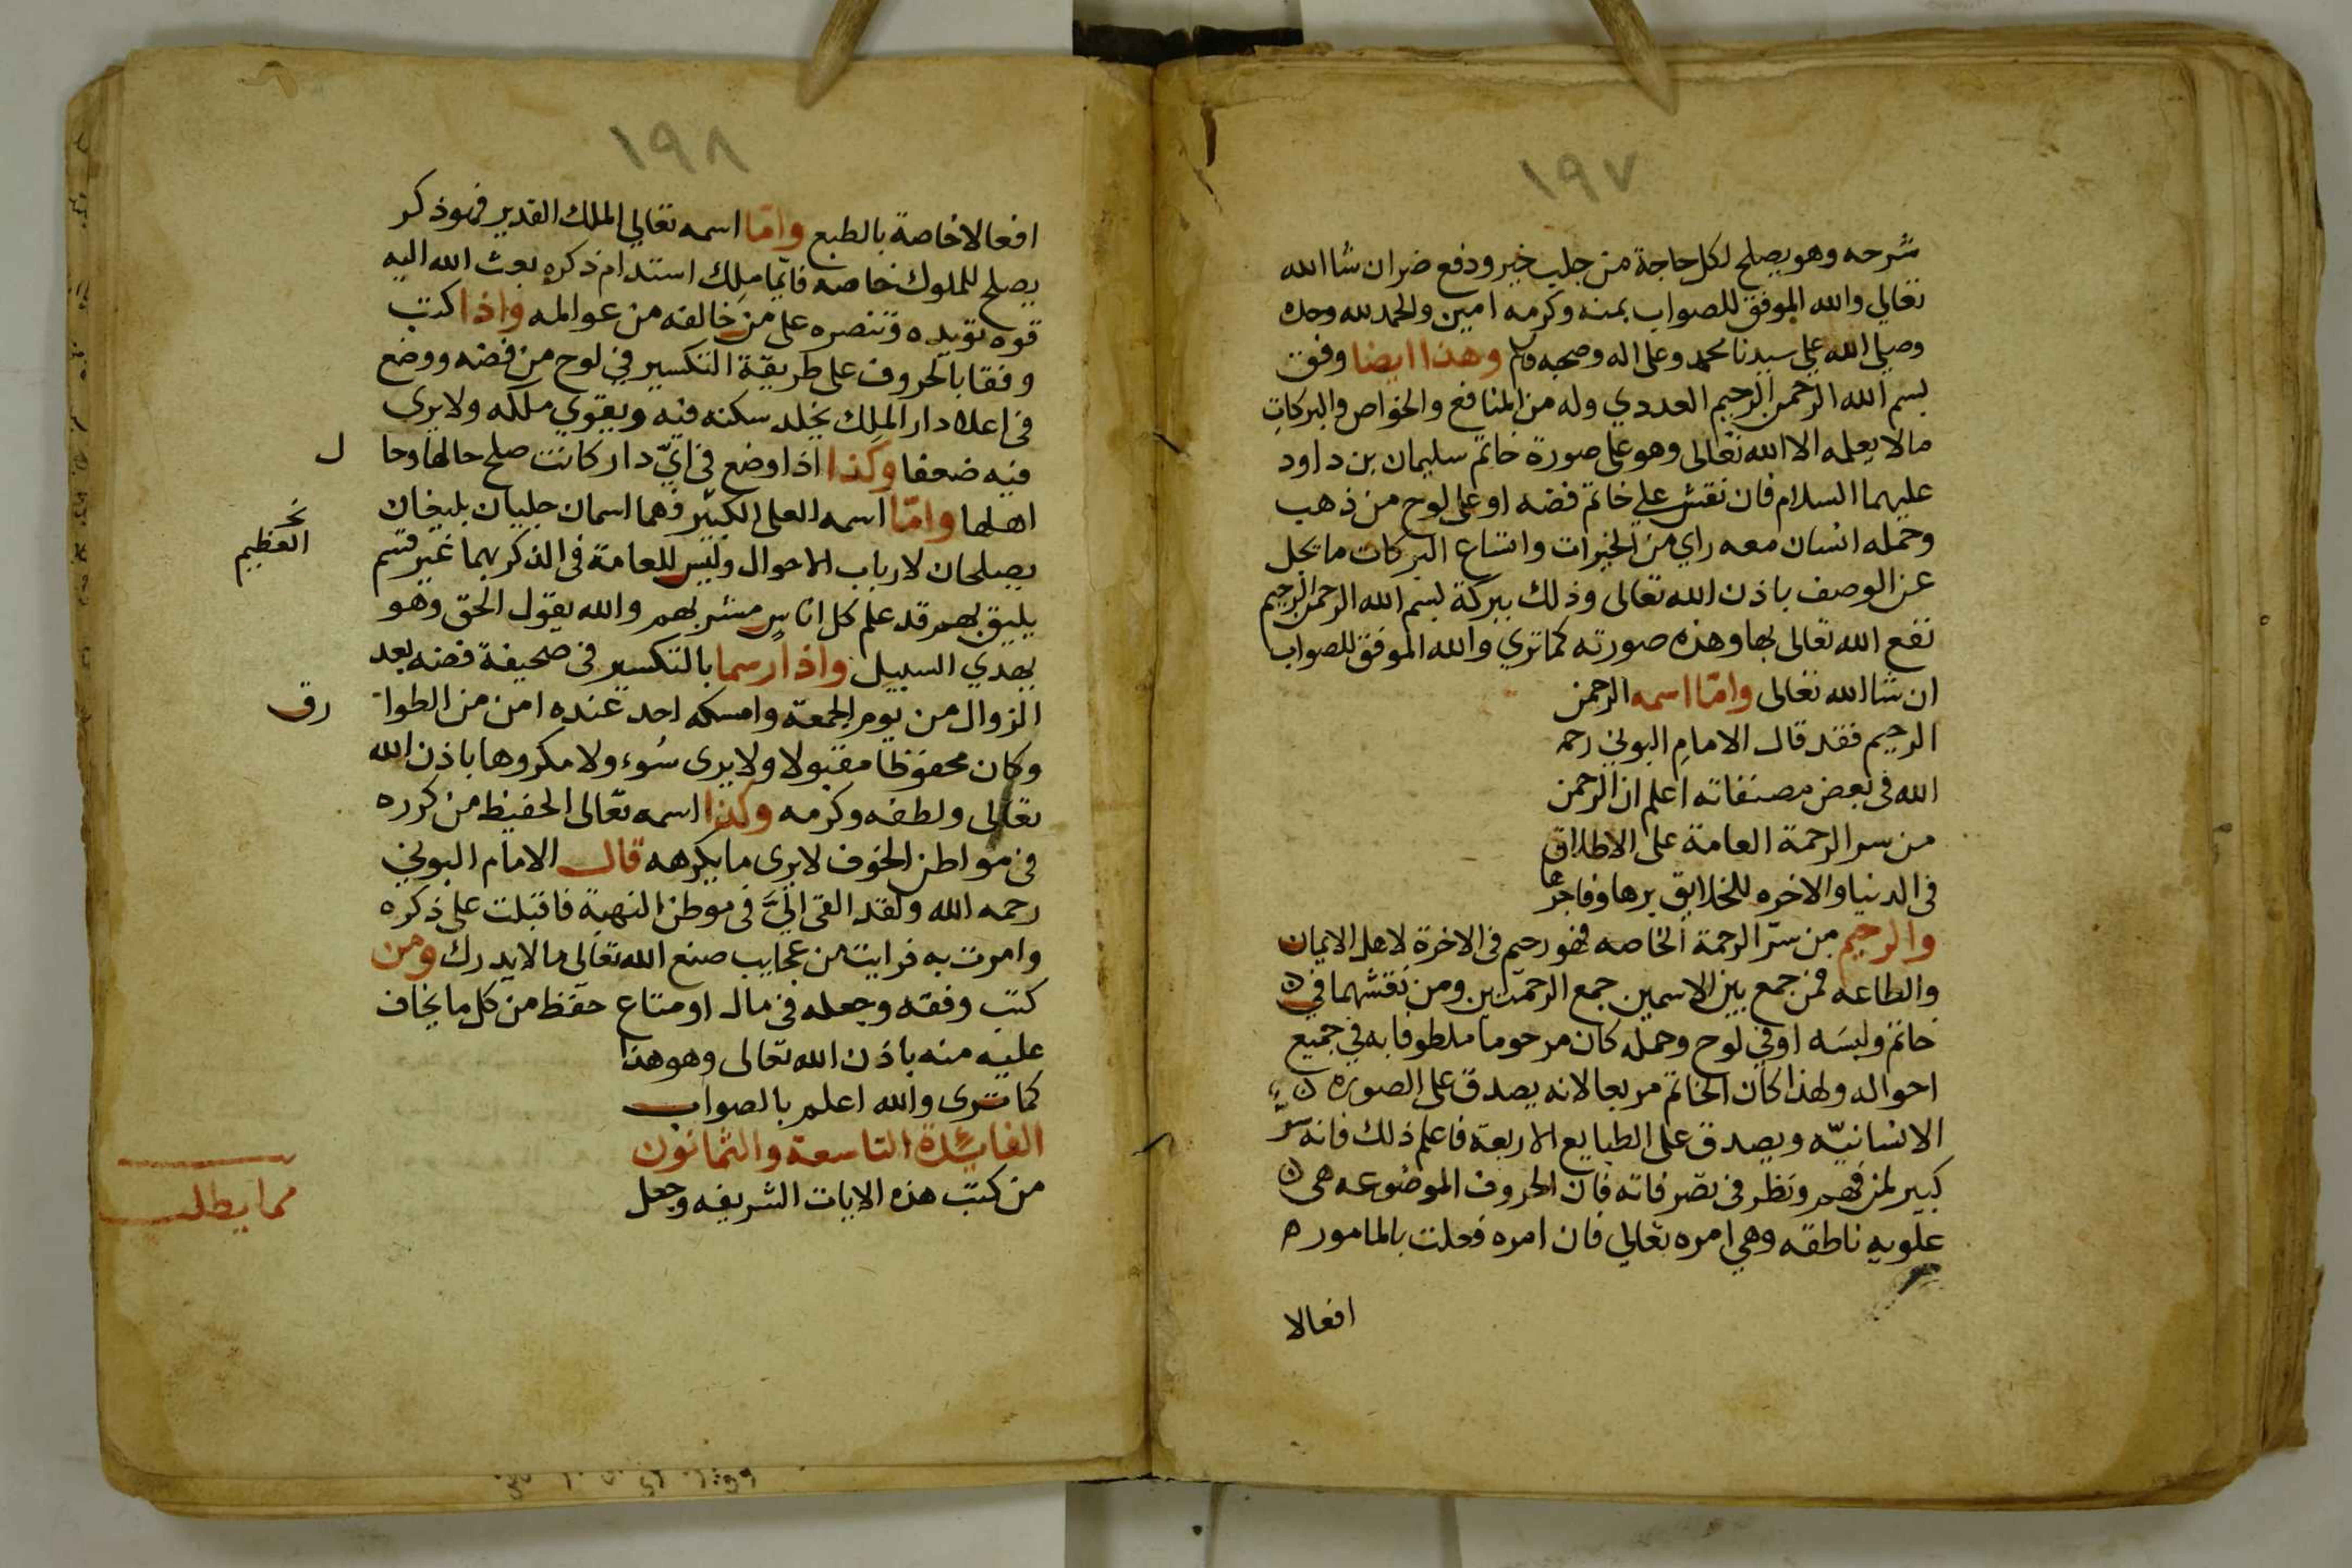 ١٩٧
شرحه وهو يصلح لكل حاجة من جلب خير ودفع ضر ان شا الله
تعالي والله الموفق للصواب بمنه وكرمه امين والحمد لله وحده
وصلي الله علي سيدنا محمد وعلى اله وصحبه وسلم وهذا ايضا وفق
بسم الله الرحمن الرحيم العددي وله من المنافع والخواص والبركات
مالا يعلمه الا الله تعالى وهو على صورة خاتم سليمان بن داود
عليهما السلام فان نقش علي خاتم فضه او على لوح من ذهب
وحمله انسان معه راي من الخيرات واتساع البركات ما يجل
عن الوصف باذن الله تعالى وذلك ببركة بسم الله الرحمن الرحيم
نفع الله تعالى بها وهذه صورته كما تري والله الموفق للصواب
ان شا الله تعالى وامّا اسمه الرحمن
الرحيم فقد قال الامام البوني رحمه
الله في بعض مصنفاته اعلم ان الرحمن
من سر الرحمة العامة على الاطلاق
في الدنيا والاخره للخلايق برها وفاجرها
والرحيم من سرّ الرحمة الخاصه فهو رحيم في الاخرة لاهل الايمان
والطاعه فمن جمع بين الاسمين جمع الرحمتين ومن نقشهما في
خاتم ولبسَه او في لوح وحمله كان مرحوما ملطوفا به في جميع
احواله ولهذا كان الخاتم مربعا لانه يصدق على الصوره
الانسانيّه ويصدق على الطبايع الاربعة فاعلم ذلك فانه سرّ
كبير لمن فهم ونظر في تصرفاته فان الحروف الموضوعه هي
علويه ناطقه وهي امره تعالي فان امره فعلت بالماموره
افعالا
١٩٨
افعالا خاصة بالطبع وامّا اسمه تعالي الملك القدير فهو ذكر
يصلح للملوك خاصه فايّما ملِك استدام ذكره بعث الله اليه
قوه تويده وتنصره على من خالفه من عوالمه واذا كتب
وفقا بالحروف على طريقة التكسير في لوح من فضه ووضع
في اعلا دار الملِك يخلد سكنه فيه ويقوي ملكه ولا يرى
فيه ضعفا وكذا اذا وضع في ايّ دار كانت صلح حالها وحا
ل
اهلها وامّا اسمه العلي الكبير فهما اسمان جليان بليغان
نخ
العظيم
يصلحان لارباب الاحوال وليس للعامة في الذكر بهما غير قسم
يليق بهم قد علم كل اناسٍ مشربهم والله يقول الحق وهو
يهدي السبيل واذا رسما بالتكسير في صحيفة فضه بعد
الزوال من يوم الجمعة وامسكه احد عنده امن من الطوا
رق
وكان محفوظا مقبولا ولا يرى سُوء ولا مكروها باذن الله
تعالى ولطفه وكرمه وكذا اسمه تعالى الحفيظ من كرره
في مواطن الخوف لا يرى ما يكرهه قال الامام البوني
رحمه الله ولقد القى اليَّ في موطن النهبة فاقبلت على ذكره
وامرت به فرايت من عجايب صنع الله تعالى مالا يدرك ومن
كتب وفقه وجعله في مال او متاع حفظ من كل ما يخاف
عليه منه باذن الله تعالى وهو هذا
كما ترى والله اعلم بالصواب
الفايدة التاسعة والثمانون
من كتب هذه الايات الشريفه وجعل
مما يطلب